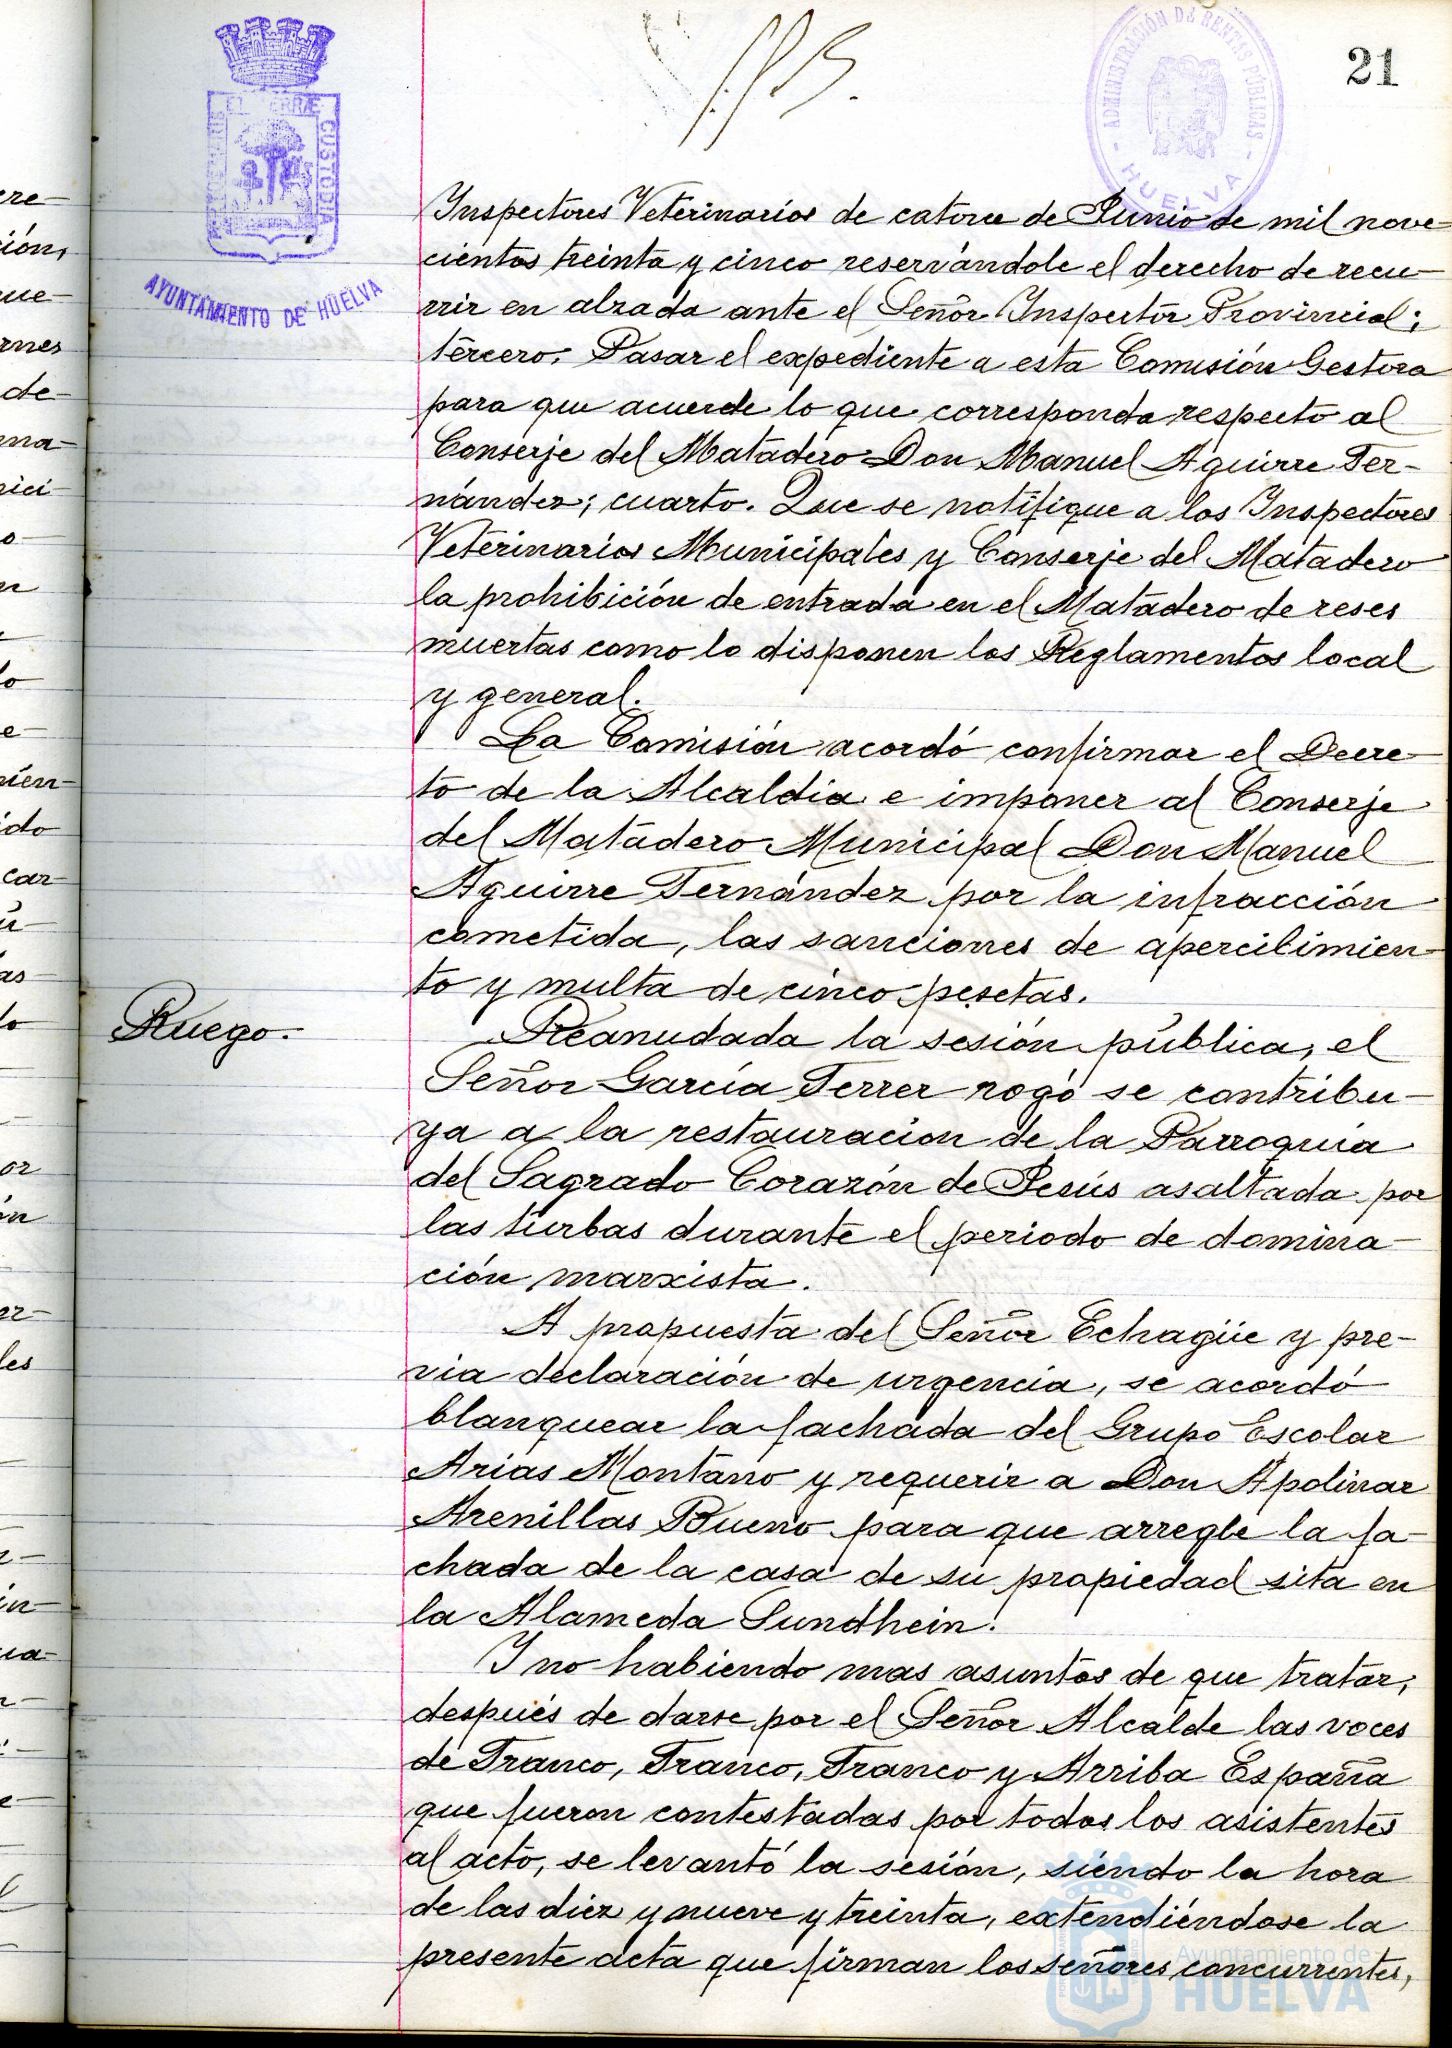 21
ADMINISTRACIÓN DE RENTAS PÚBLICAS
- HUELVA -
CUSTODIA
AYUNTAMIENTO DE HUELVA
Inspectores Veterinarios de catorce de Junio de mil nove-
cientos treinta y cinco reservándole el derecho de recu-
rrir en alzada ante el Señor Inspector Provincial;
tercero. Pasar el expediente a esta Comisión Gestora
para que acuerde lo que corresponda respecto al
Conserje del Matadero Don Manuel Aguirre Fer-
nández; cuarto. Que se notifique a los Inspectores
Veterinarios Municipales y Conserje del Matadero
la prohibición de entrada en el Matadero de reses
muertas como lo disponen los Reglamentos local
y general.
La Comisión acordó confirmar el Decre-
to de la Alcaldía e imponer al Conserje
del Matadero Municipal Don Manuel
Aguirre Fernández por la infracción
cometida, las sanciones de apercibimien-
to y multa de cinco pesetas.
Ruego.
Reanudada la sesión pública, el
Señor García Ferrer rogó se contribu-
ya a la restauracion de la Parroquia
del Sagrado Corazón de Jesús asaltada por
las turbas durante el periodo de domina-
ción marxista.
A propuesta del Señor Echagüe y pre-
via declaración de urgencia, se acordó
blanquear la fachada del Grupo Escolar
Arias Montano y requerir a Don Apolinar
Arenillas Bueno para que arregle la fa-
chada de la casa de su propiedad sita en
la Alameda Sundhein.
Y no habiendo mas asuntos de que tratar,
después de darse por el Señor Alcalde las voces
de Franco, Franco, Franco y Arriba España
que fueron contestadas por todos los asistentes
al acto, se levantó la sesión, siendo la hora
de las diez y nueve y treinta, extendiéndose la
presente acta que firman los señores concurrentes,
Ayuntamiento de
HUELVA